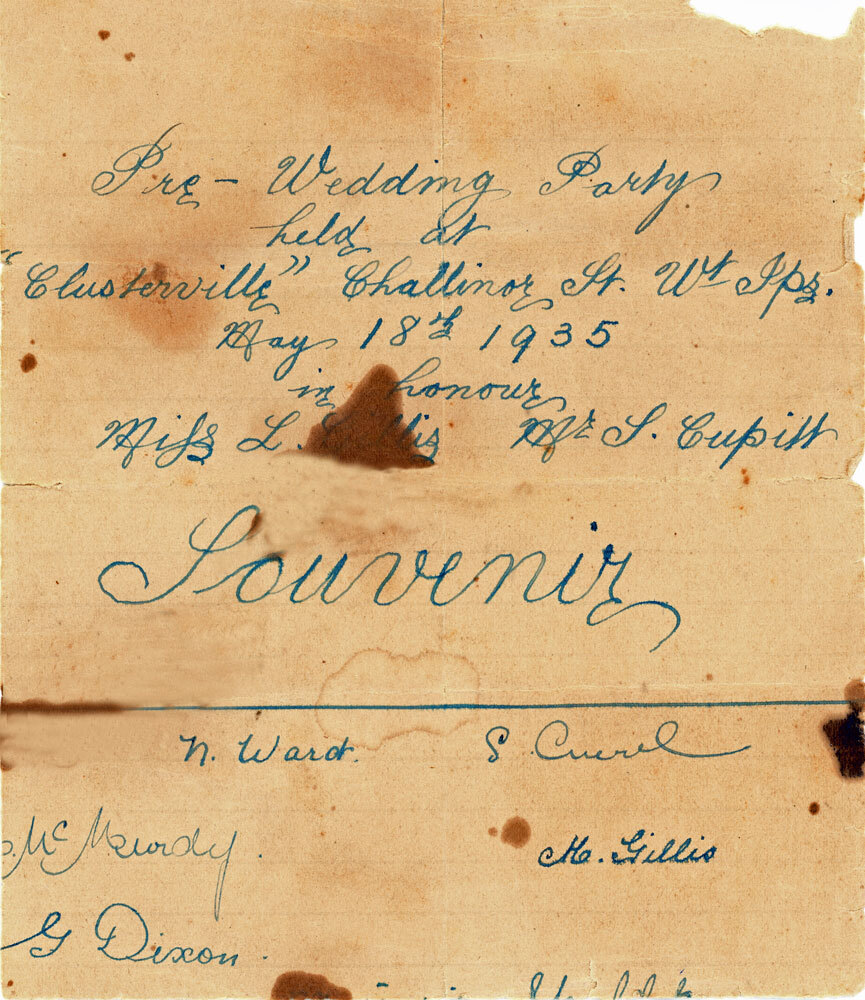 Pre- Wedding Party
held at
"Clusterville" Challinor St. Wt Ips.
May 18th 1935
in honour
Miss L. Mr S. Cupitt
Souvenir
N. Ward. S
Mc
M. Gillis
G Dixon.